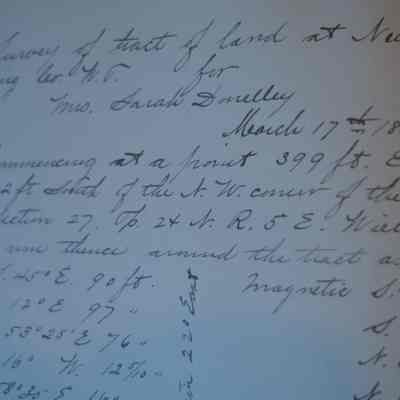 Survey of tract of land at New
Co. W.T. for
Mrs. Sarah Donelley
March 17th 18
ommencing at a point 399 ft. E
2 ft South of the N.W. corner of the
ection 27. Tp. 24 N. R. 5 E. Will
run thence around the tract as
25° E. 90 ft. Magnetic S.
12° E 97 "
S.
53° 25' E 76 "
16° W. 12 5/10 "
N.
Var 22° East